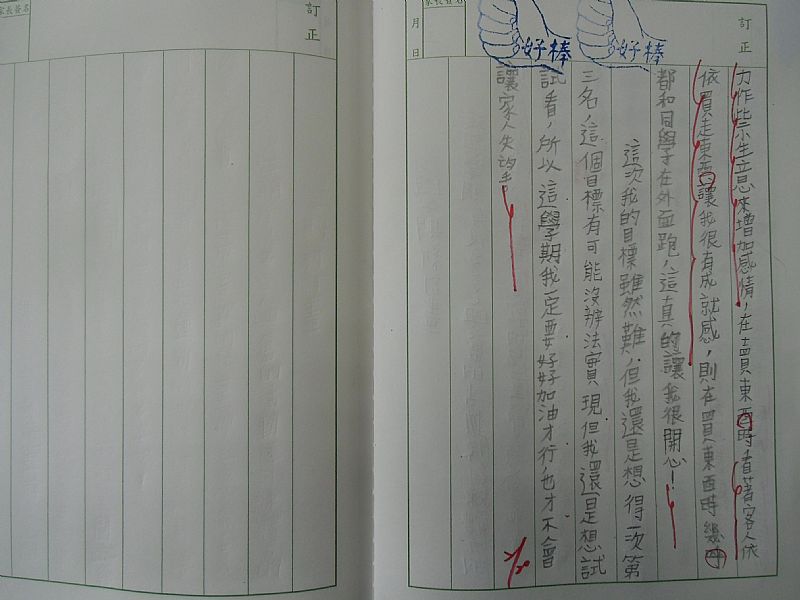 訂正
力作些小生意來增加感情，在賣東西時看著客人依
依買走東西讓我很有成就感，則在買東西時幾乎
都和同學在外面跑，這真的讓我很開心！
這次我的目標雖然難，但我還是想得一次第
三名，這個目標有可能沒辨法實現但我還是想試
試看，所以這學期我一定要好好加油才行，也才不會
讓家人失望。
好棒
好棒
家長簽名
月 日
訂正
家長簽名